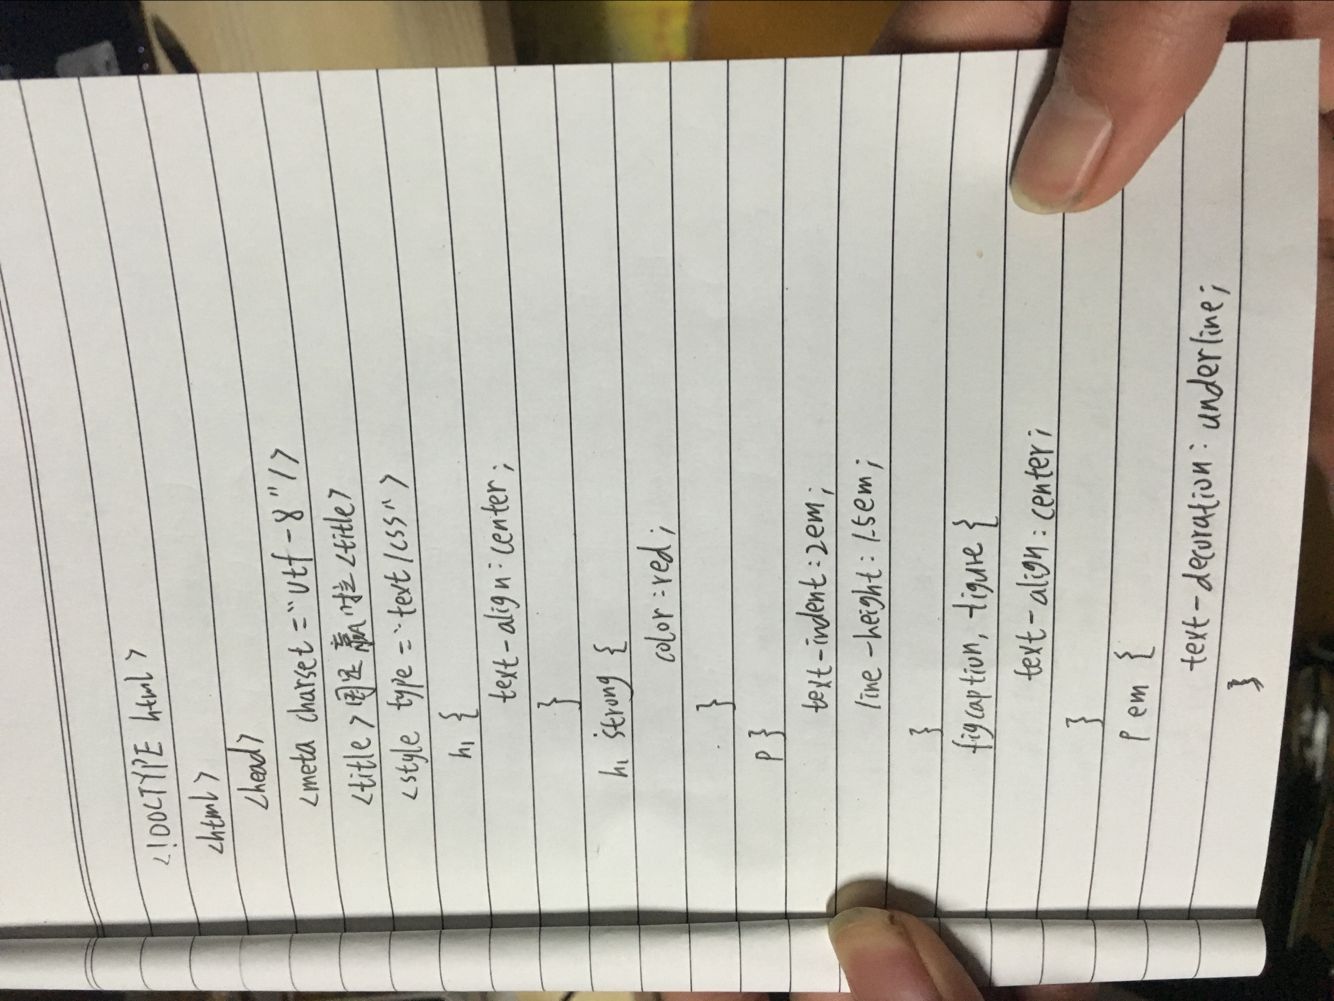 <!DOCTYPE html>
<html>
<head>
<meta charset="utf-8"/>
<title>国足赢啦<title>
<style type="text/css">
h1 {
text-align:center;
}
h1 strong {
color:red;
}
p }
text-indent:2em;
line-height:1.5em;
}
figcaption, figure {
text-align:center;
}
p em {
text-decoration:underline;
}